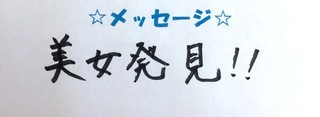 ☆メッセージ☆
美女発見!!